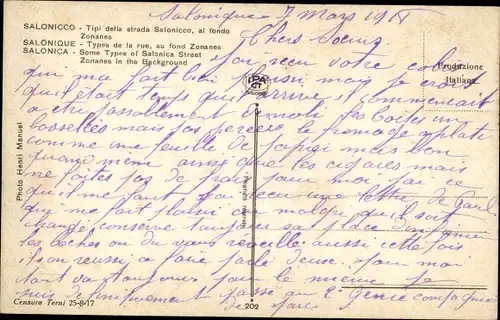 SALONICCO - Tipi della strada Salonicco, al fondo
Zonanes
SALONIQUE - Types de la rue, au fond Zonanes
SALONICA - Some Types of Salonica Street
Zonanes in the Background
Salonique 7 Mars 191
Chers Soeur
Produzione
Italiana
j'ai reçu votre colis
qui m'a fait bien plaisir mais je crois
qu'il était temps qu'il arrive il commençait
a etre passablement demoli les boites un
bosselées mais pas percées le fromage aplati
comme une feuille de papier mais bon
quand même ainsi que les cigares mais
ne faites pas de frais pour moi j'ai ce
qu'il me faut j'ai reçu une lettre de Paul
qui me fait plaisir car malgré qu'il soit
changé conserve toujours sa place
les boches on du vous reveiller aussi cette fois
ils on reussi a faire parler d'eux. pour moi
tout va toujours pour le mieux je
suis definitivement passé au 2e Génie compagnie
de parc
Photo Henri Manuel
202
Censura Terni 25-8-17